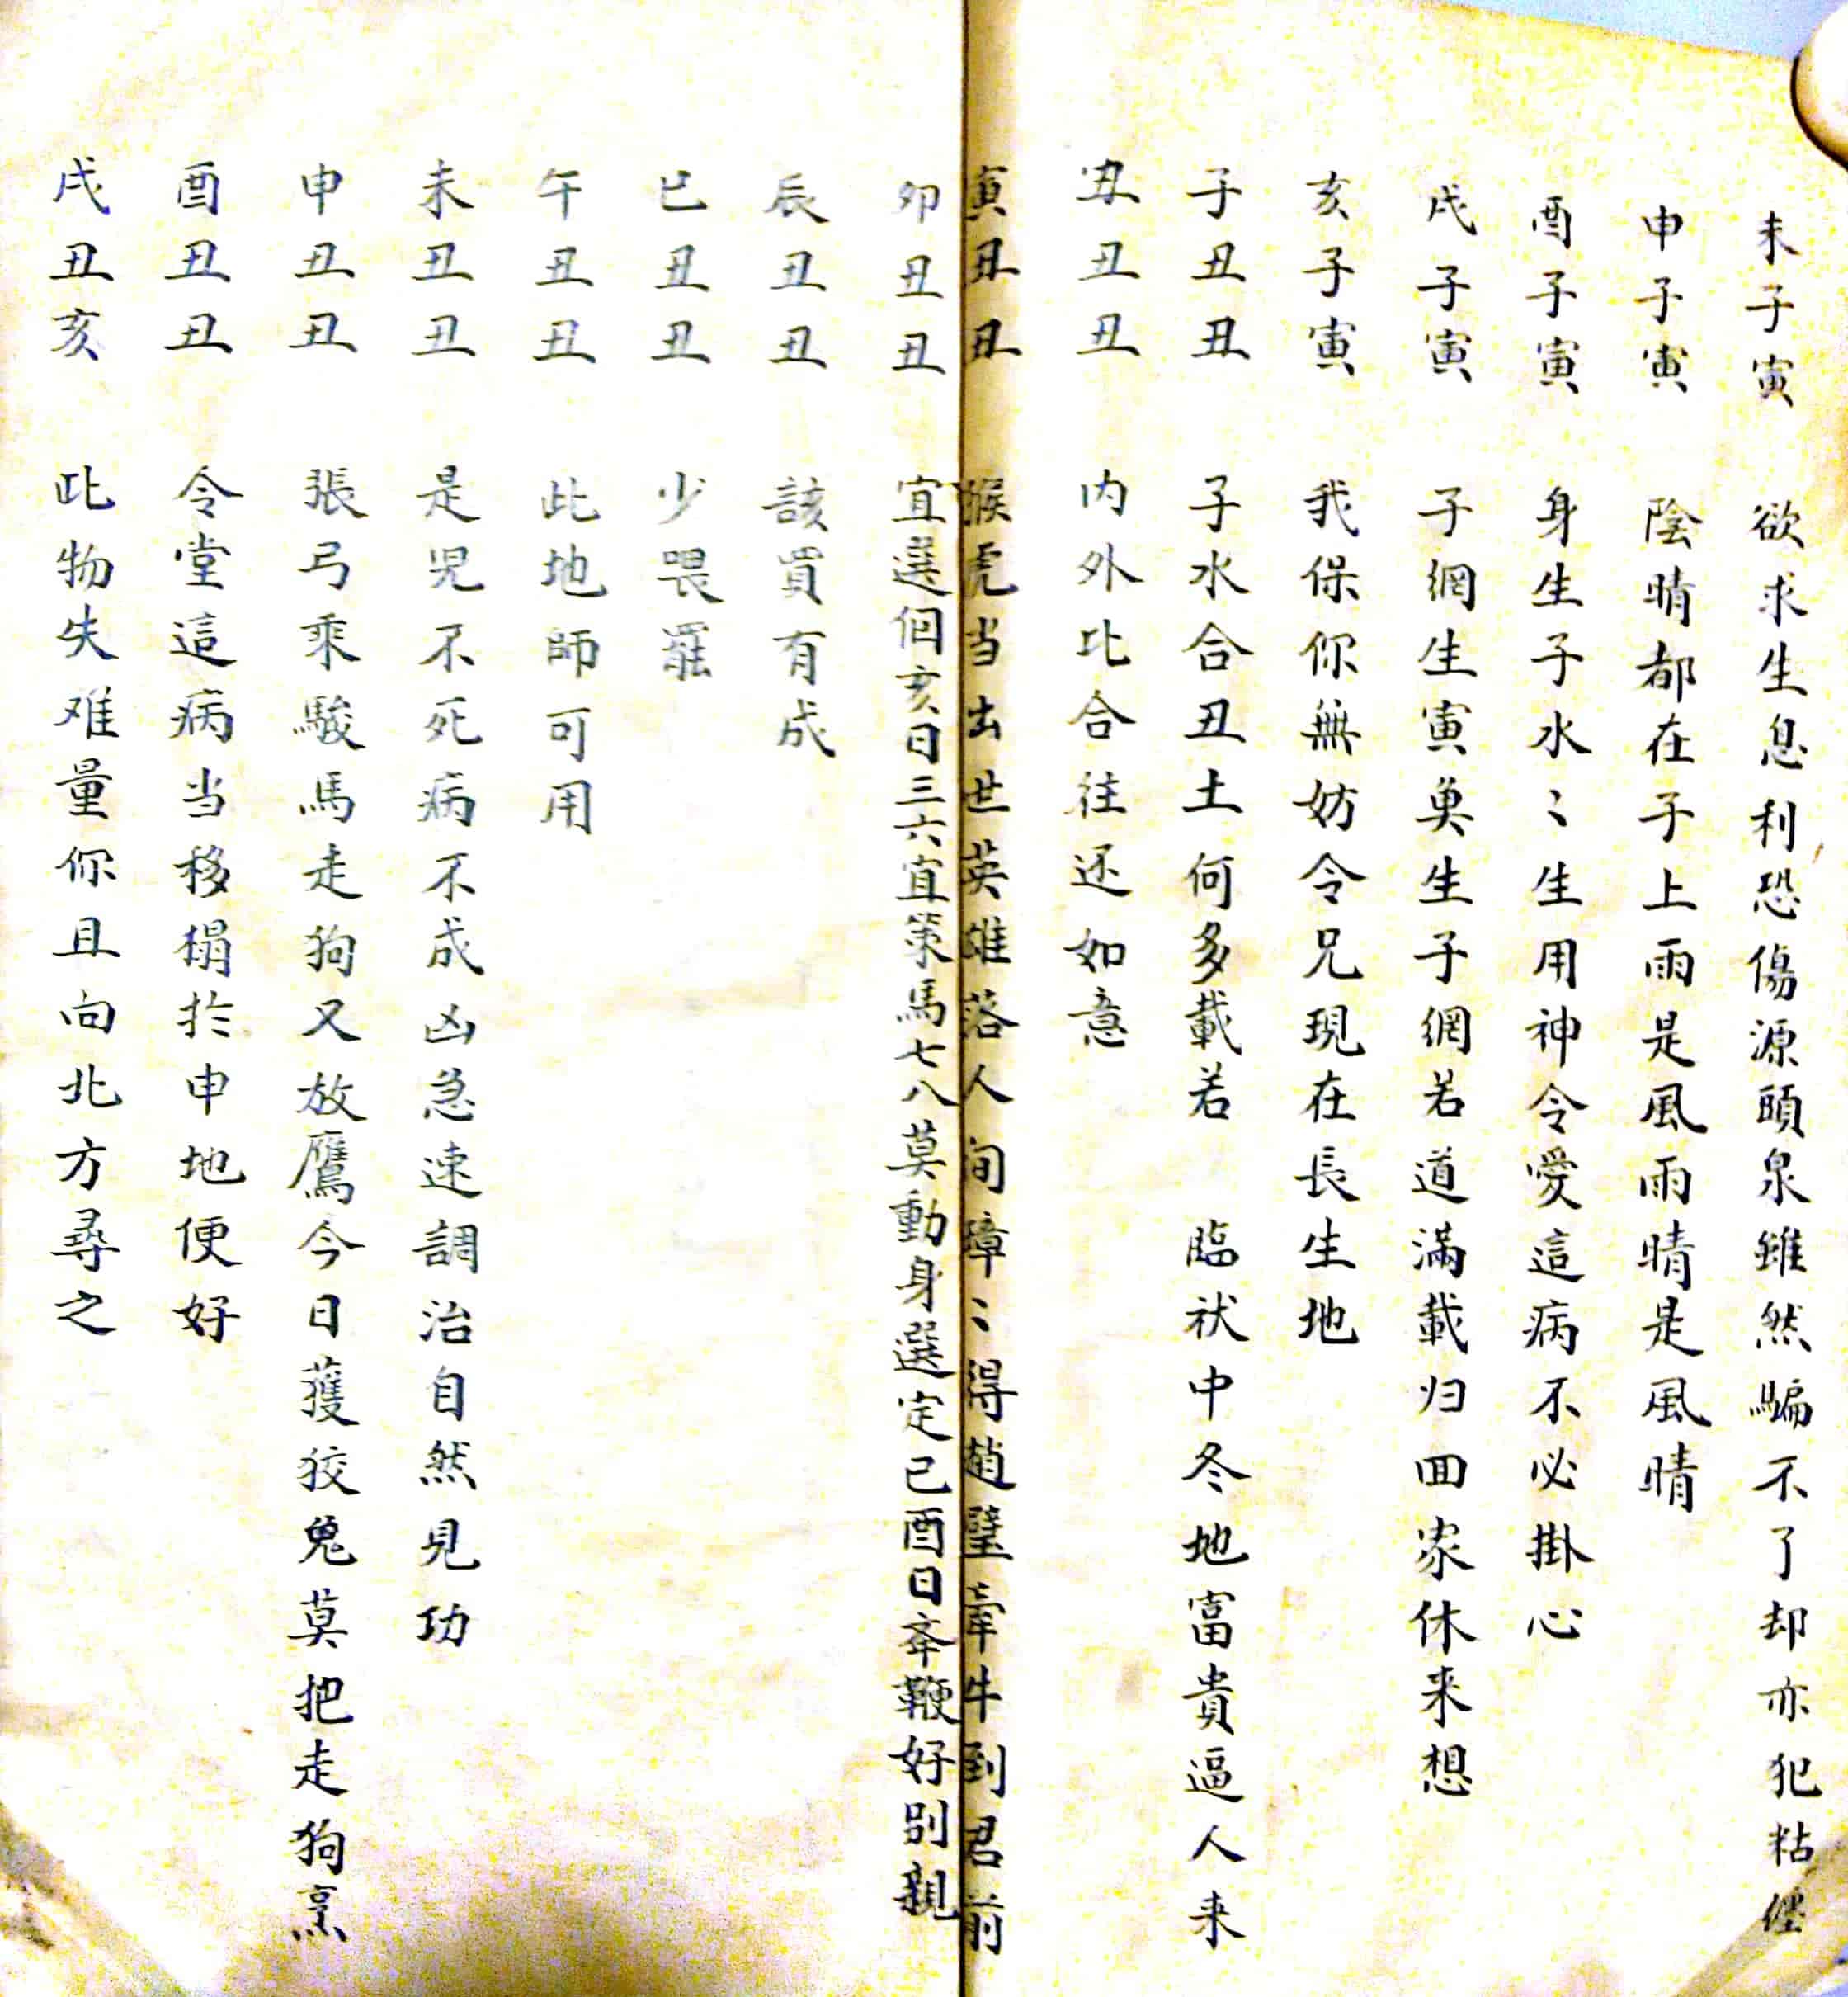 未子寅 欲求生息利恐傷源頭泉雖然騙不了却亦犯粘
申子寅 陰晴都在子上雨是風雨晴是風晴
酉子寅 身生子水〻生用神令愛這病不必掛心
戌子寅 子網生寅奐生子網若道滿載归回家休来想
亥子寅 我保你無妨令兄現在長生地
子丑丑 子水合丑土何多載若 臨袱中冬地富貴逼人来
丑丑丑 内外比合往还如意
寅丑丑 猴虎当出世英雄落人间璋〻得趙璧牽牛到君前
卯丑丑 宜選個亥日三六宜策馬七八莫動身選定己酉日鞭好别親
辰丑丑 該買有成
巳丑丑 少畏罷
午丑丑 此地師可用
未丑丑 是児不死病不成凶急速調治自然見功
申丑丑 張弓乘駿馬走狗又放鷹今日獲狡兎莫把走狗烹
酉丑丑 令堂這病当移榻於申地便好
戌丑亥 此物失难量你且向北方尋之